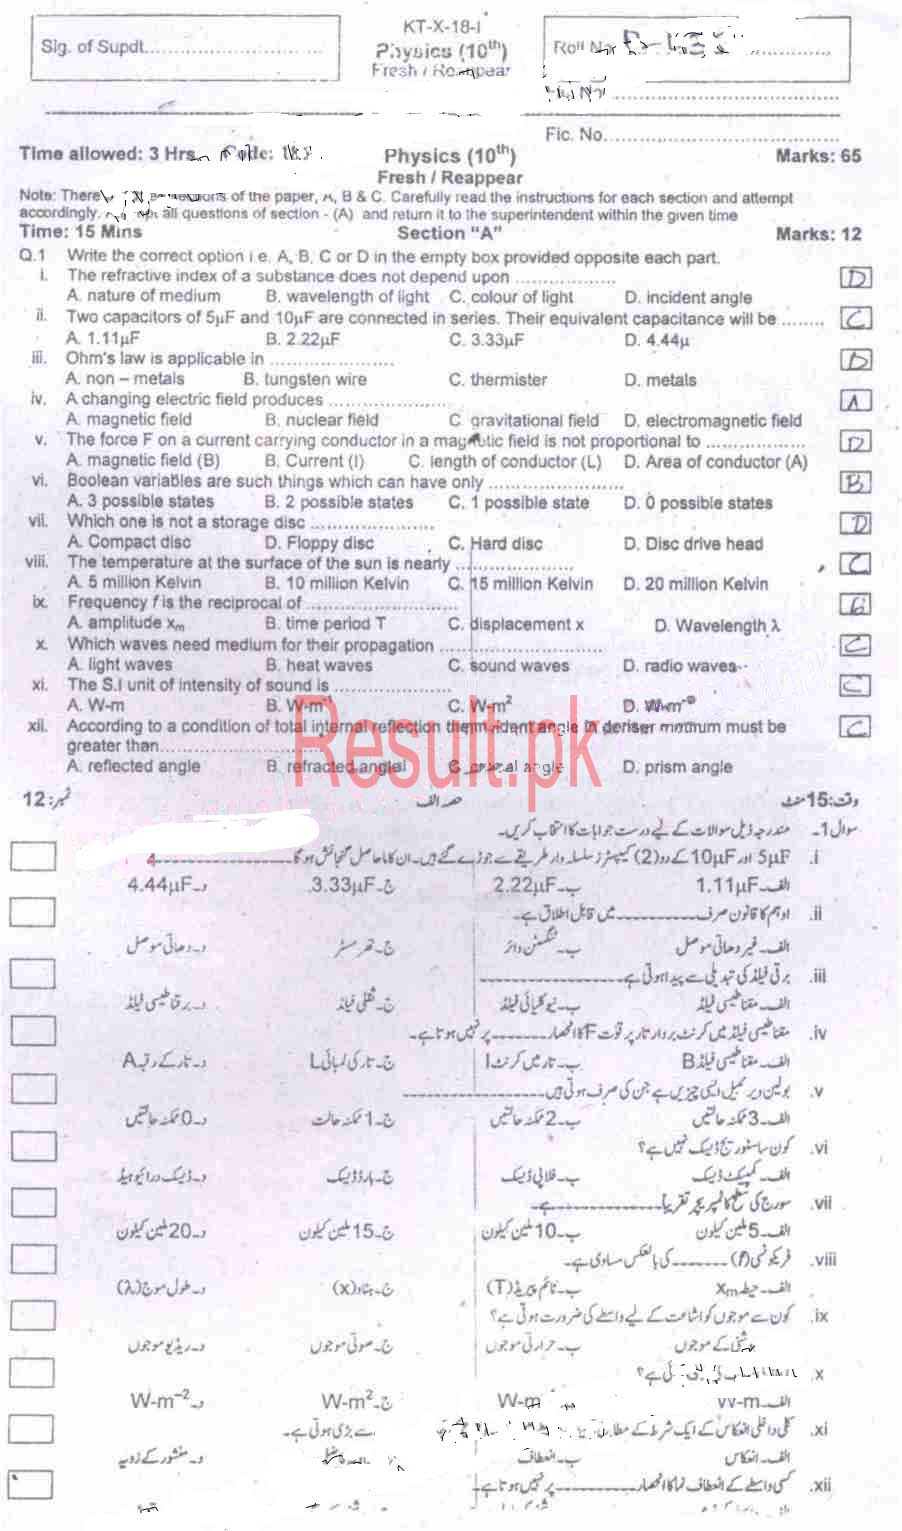 KT-X-18-I
Sig. of Supdt..............................
Physics (10th)
Roll No
Fresh / Reappear
Fic. No..............................
Time allowed: 3 Hrs Code:
Physics (10th)
Marks: 65
Fresh / Reappear
Note: There of the paper, A, B & C. Carefully read the instructions for each section and attempt
accordingly. all questions of section - (A) and return it to the superintendent within the given time
Time: 15 Mins Section "A" Marks: 12
Q.1 Write the correct option i.e. A, B, C or D in the empty box provided opposite each part.
i. The refractive index of a substance does not depend upon .................. D
A. nature of medium B. wavelength of light C. colour of light D. incident angle
ii. Two capacitors of 5µF and 10µF are connected in series. Their equivalent capacitance will be ........ C
A. 1.11µF B. 2.22µF C. 3.33µF D. 4.44µ
iii. Ohm's law is applicable in ...................... D
A. non – metals B. tungsten wire C. thermister D. metals
iv. A changing electric field produces ...................... A
A. magnetic field B. nuclear field C. gravitational field D. electromagnetic field
v. The force F on a current carrying conductor in a magnetic field is not proportional to .................. D
A. magnetic field (B) B. Current (I) C. length of conductor (L) D. Area of conductor (A)
vi. Boolean variables are such things which can have only ........................ B
A. 3 possible states B. 2 possible states C. 1 possible state D. 0 possible states
vii. Which one is not a storage disc ...................... D
A. Compact disc D. Floppy disc C. Hard disc D. Disc drive head
viii. The temperature at the surface of the sun is nearly ..................... C
A. 5 million Kelvin B. 10 million Kelvin C. 15 million Kelvin D. 20 million Kelvin
ix. Frequency f is the reciprocal of ...........................
A. amplitude xm B. time period T C. displacement x D. Wavelength λ
x. Which waves need medium for their propagation ............................. C
A. light waves B. heat waves C. sound waves D. radio waves
xi. The S.I unit of intensity of sound is ..................... C
A. W-m B. W-m⁻¹ C. W-m² D. W-m
xii. According to a condition of total internal reflection angle in denser must be C
greater than........................
A. reflected angle B. refracted angle C. angle D. prism angle
Result.pk
وقت:15منٹ حصہ الف نمبر:12
سوال1۔ مندرجہ ذیل سوالات کے لیے درست جوابات کا انتخاب کریں۔
i. 5µF اور 10µF کے دو(2) کپیسٹرز سلسلہ وار طریقے سے جوڑے گئے ہیں۔ ان کا حاصل گنجائش ہوگا۔
الف۔1.11µF ب۔2.22µF ج۔3.33µF د۔4.44µF
ii. اوہم کا قانون صرف۔۔۔۔۔۔۔۔ میں قابل اطلاق ہے۔
الف۔ غیر دھاتی موصل ب۔ ٹنگسٹن وائر ج۔ تھرمسٹر د۔ دھاتی موصل
iii. برقی فیلڈ کی تبدیلی سے پیدا ہوتی ہے۔۔۔۔۔۔۔۔
الف۔ مقناطیسی فیلڈ ب۔ نیوکلیائی فیلڈ ج۔ ثقلی فیلڈ د۔ برقناطیسی فیلڈ
iv. مقناطیسی فیلڈ میں کرنٹ بردار تار پر قوت F کا انحصار۔۔۔۔۔۔۔ پر نہیں ہوتا ہے۔
الف۔ مقناطیسی فیلڈ B ب۔ تار میں کرنٹ I ج۔ تار کی لمبائی L د۔ تار کے رقبہ A
v. بولین ویریبل ایسی چیزیں ہے جن کی صرف ہوتی ہیں۔۔۔۔۔۔۔۔
الف۔3 ممکنہ حالتیں ب۔2 ممکنہ حالتیں ج۔1 ممکنہ حالت د۔0 ممکنہ حالتیں
vi. کون سا سٹوریج ڈسک نہیں ہے؟
الف۔ کمپیکٹ ڈسک ب۔ فلاپی ڈسک ج۔ ہارڈ ڈسک د۔ ڈسک درائیو ہیڈ
vii. سورج کی سطح کا ٹمپریچر تقریبا۔۔۔۔۔۔۔۔ ہے۔
الف۔5 ملین کیلون ب۔10 ملین کیلون ج۔15 ملین کیلون د۔20 ملین کیلون
viii. فریکونسی (f)۔۔۔۔۔۔ کی بالعکس مساوی ہے۔
الف۔ حیطہ xm ب۔ ٹائم پیریڈ (T) ج۔ ہٹاو (x) د۔ طول موج (λ)
ix. کون سے موجوں کو اشاعت کے لیے واسطے کی ضرورت ہوتی ہے؟
کے موجوں ب۔ حرارتی موجوں ج۔ صوتی موجوں د۔ ریڈیو موجوں
x. ہے؟
الف۔ W-m W-m ج۔ W-m² د۔ W-m⁻²
xi. کلی داخلی انعکاس کے ایک شرط کے مطابق سے بڑی ہوتی ہے۔
الف۔ انعکاس ب۔ انعطاف د۔ منشور کے زاویہ
xii. کسی واسطے کے انعطاف نما کا انحصار۔۔۔۔۔۔۔۔ پر نہیں ہوتا ہے۔